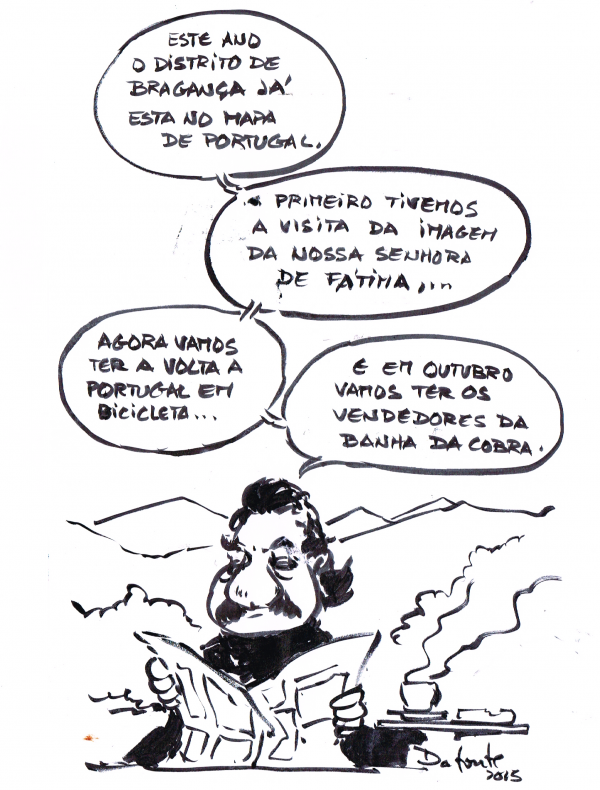 ESTE ANO
O DISTRITO DE
BRAGANÇA JÁ
ESTA NO MAPA
DE PORTUGAL.
PRIMEIRO TIVEMOS
A VISITA DA IMAGEM
DA NOSSA SENHORA
DE FÁTIMA...
AGORA VAMOS
TER A VOLTA A
PORTUGAL EM
BICICLETA...
E EM OUTUBRO
VAMOS TER OS
VENDEDORES DA
BANHA DA COBRA.
Da fonte
2015